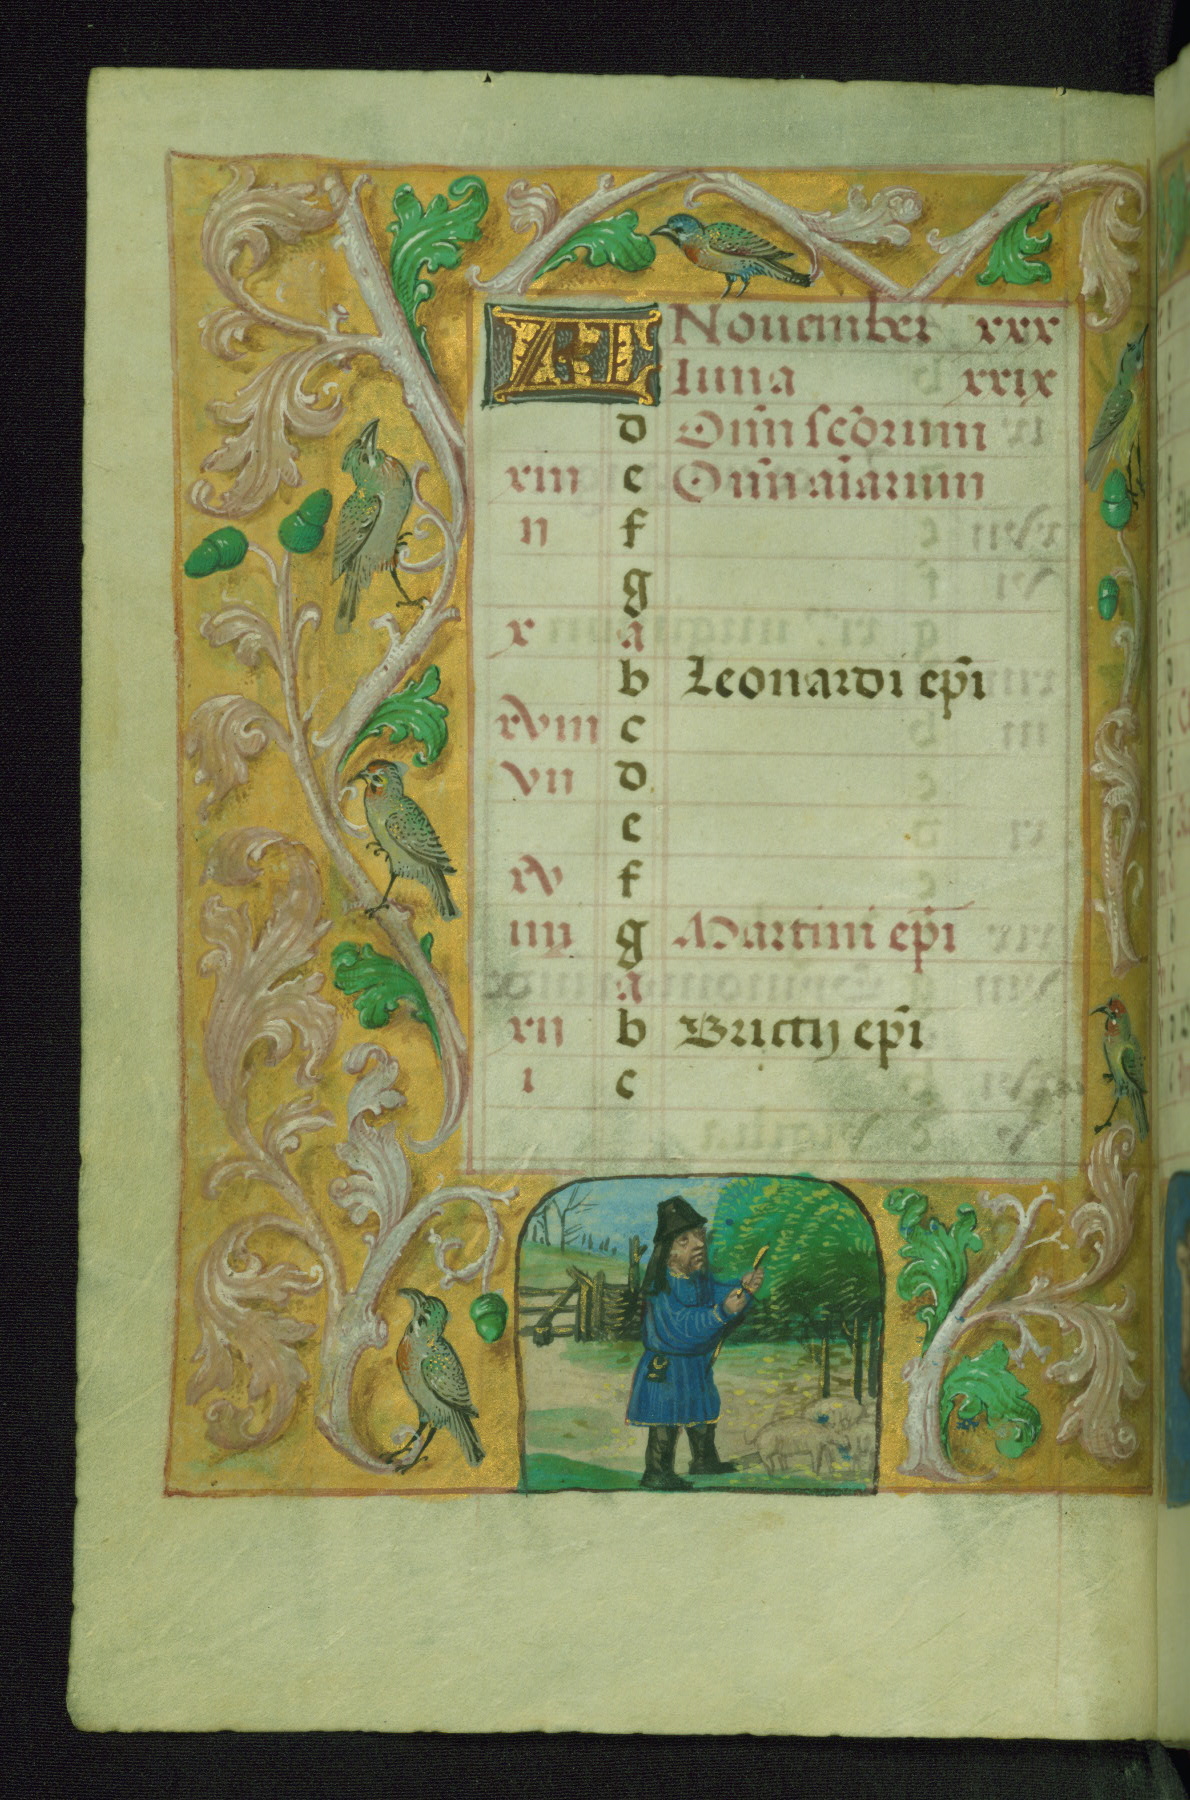 KL Nouember xxx
luna xxix
d Om̄ scōrum
xiii e Om̄ aīarum
ii f
g
x a
b Leonardi ep̄i
xviii c
vii d
e
xv f
iiii g Martini ep̄i
a
xii b Brictij ep̄i
i c